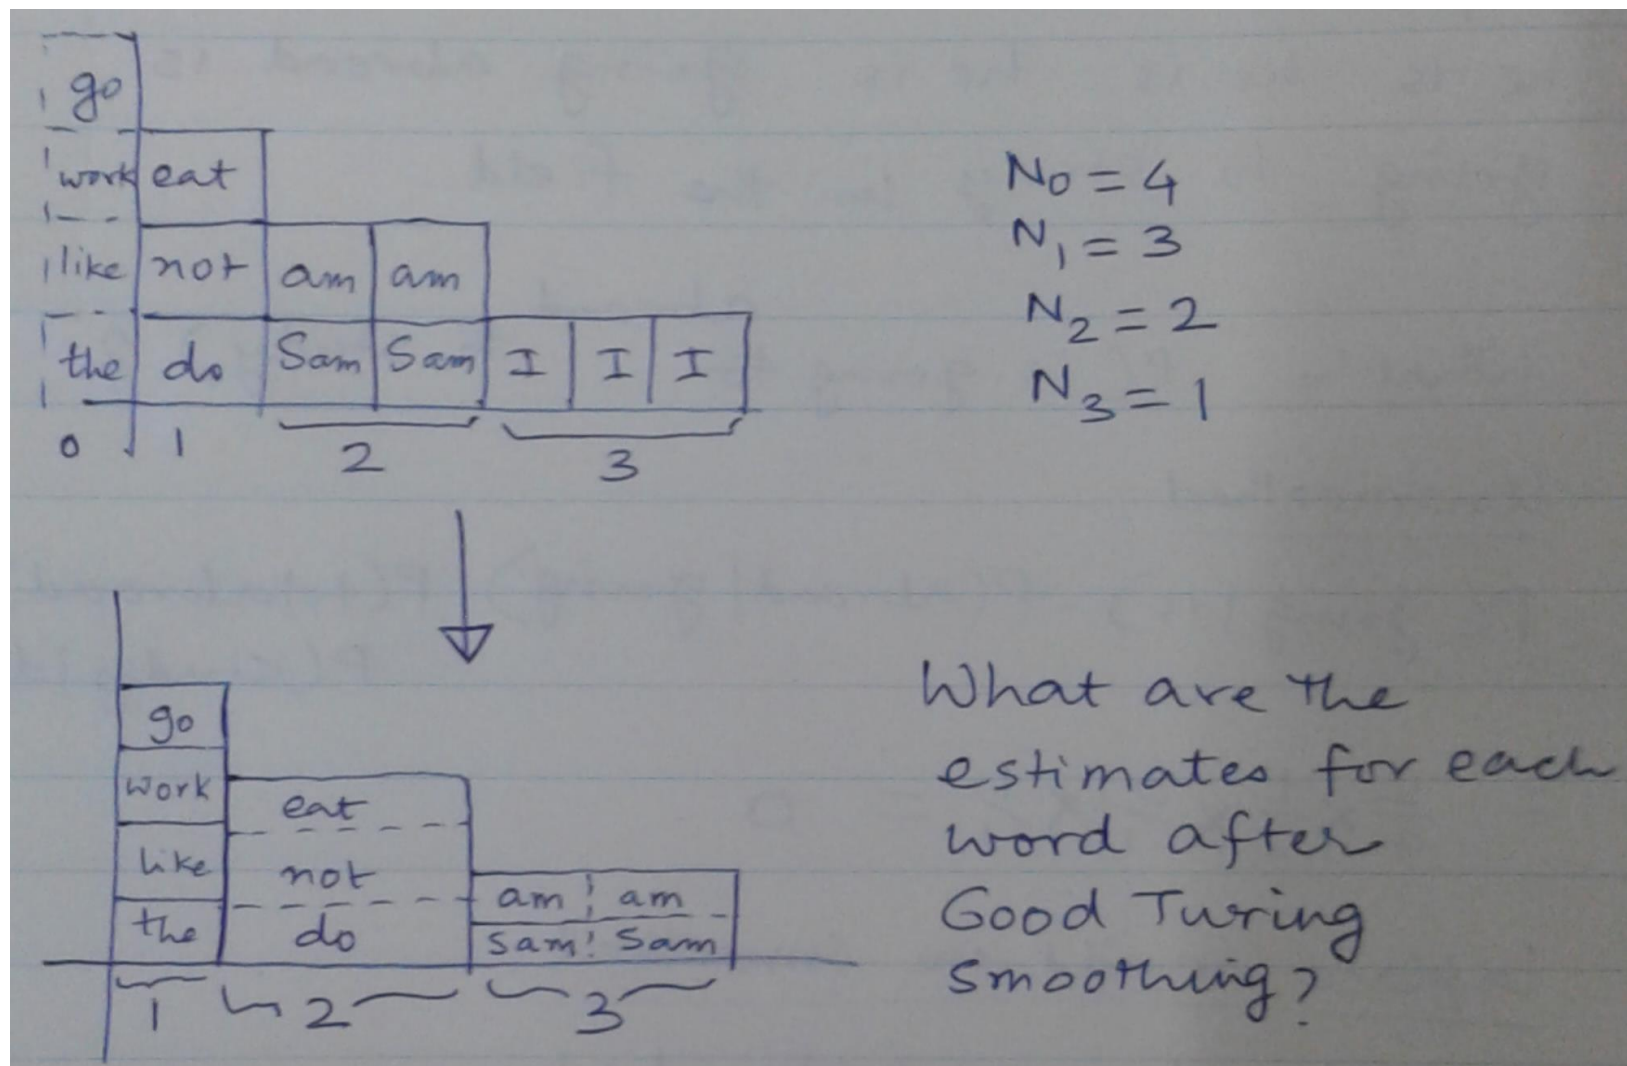 go
work eat
like not am am
the do Sam Sam I I I
0 1 2 3
N0 = 4
N1 = 3
N2 = 2
N3 = 1
go
work
eat
like
not
am am
the
do
Sam Sam
1 2 3
What are the
estimates for each
word after
Good Turing
smoothing?